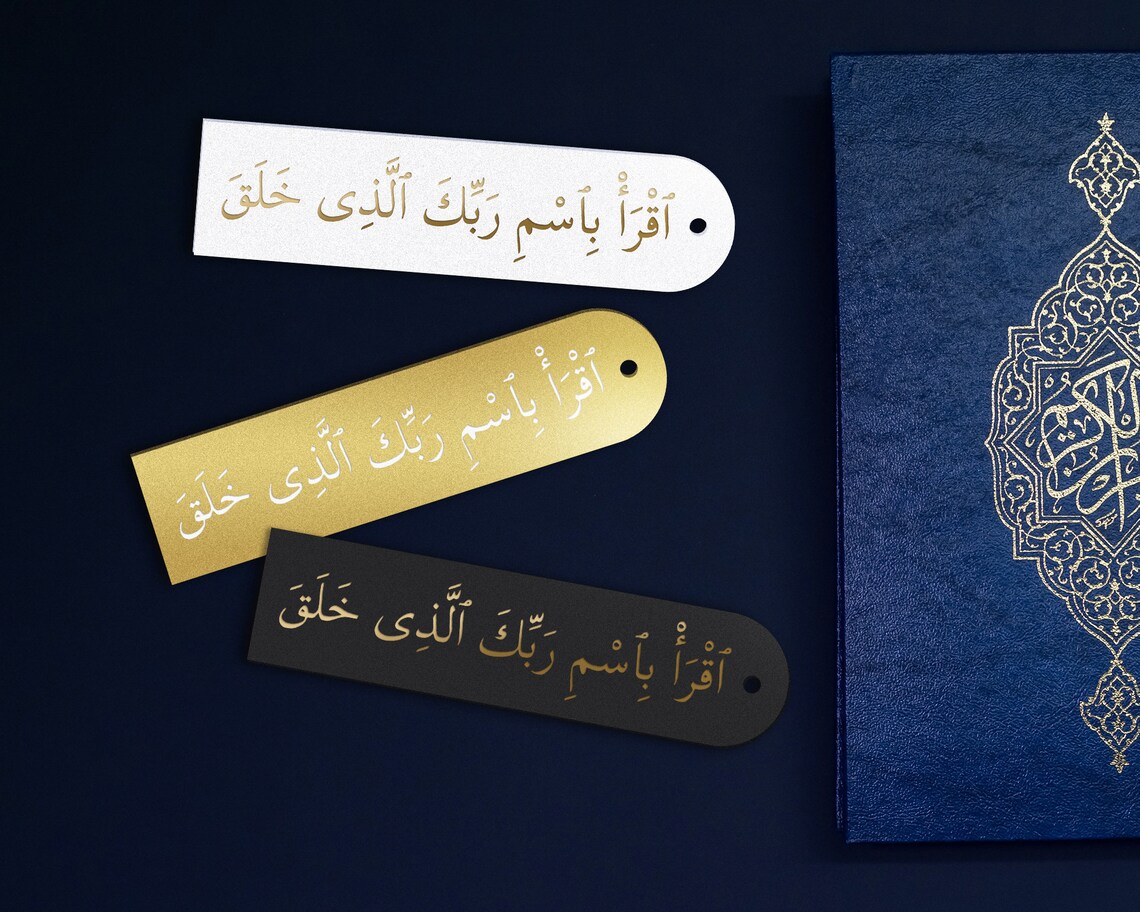 ٱقْرَأْ بِٱسْمِ رَبِّكَ ٱلَّذِى خَلَقَ
ٱقْرَأْ بِٱسْمِ رَبِّكَ ٱلَّذِى خَلَقَ
ٱقْرَأْ بِٱسْمِ رَبِّكَ ٱلَّذِى خَلَقَ